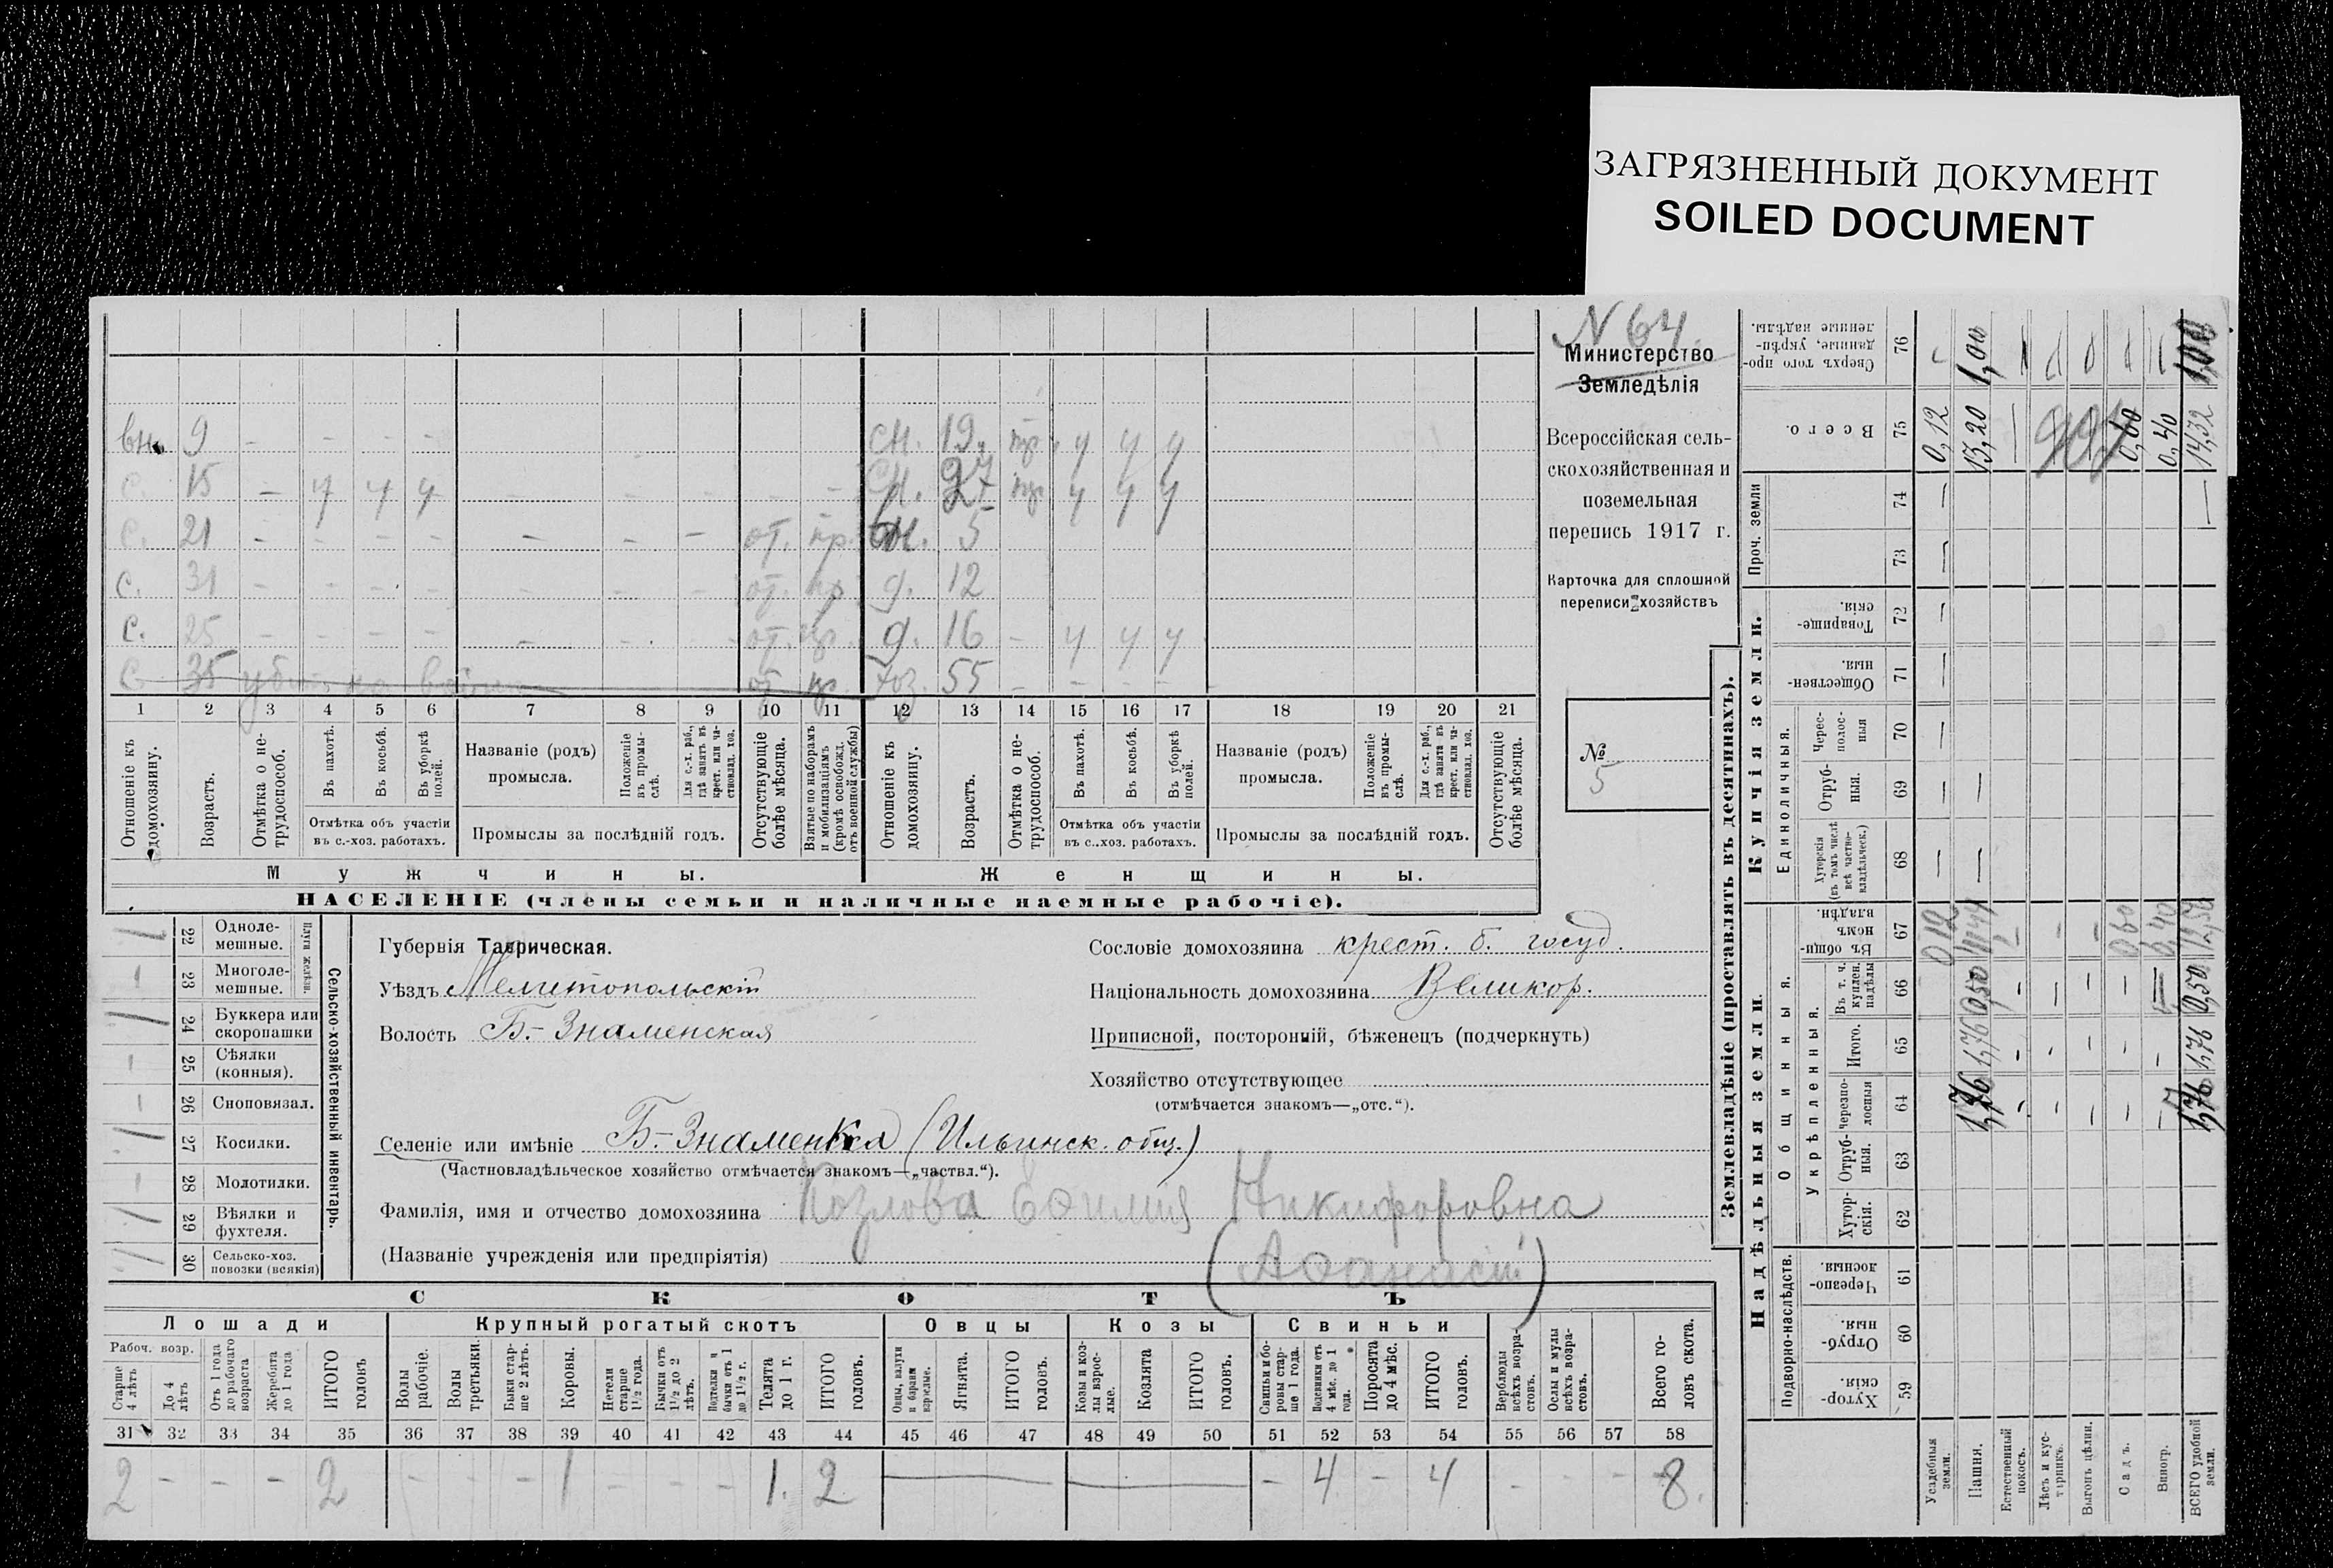 ЗАГРЯЗНЕННЫЙ ДОКУМЕНТ
SOILED DOCUMENT
N 64.
Министерство
Земледѣлія
Всероссійская сель-
скохозяйственная и
поземельная
перепись 1917 г.
Карточка для сплошной
переписи хозяйствъ
№
5
вн. 9 - - - - сн. 19 пр. у у у
с. 15 - у у у - - - - - сн. 27 пр у у у
с. 21 - - - - - - - от. пр. вн. 5
с. 31 - - - - - - - от. пр. д. 12
с. 25 - - - - - - - от. пр. д. 16 - у у у
с 35 от пр. хоз. 55 - - - -
1 2 3 4 5 6 7 8 9 10 11 12 13 14 15 16 17 18 19 20 21
Отношеніе къ домохозяину.
Возрастъ.
Отмѣтка о не-трудоспособ.
Въ пахотѣ.
Въ косьбѣ.
Въ уборкѣ полей.
Отмѣтка объ участіи въ с.-хоз. работахъ.
Названіе (родъ) промысла.
Положеніе въ промы-слѣ.
Для с.-х. раб., гдѣ занятъ въ крест. или ча-стновлад. хоз.
Промыслы за послѣдній годъ.
Отсутствующіе болѣе мѣсяца.
Взятые по наборамъ и мобилизаціямъ (кромѣ освобожд. отъ военной службы)
Отношеніе къ домохозяину.
Возрастъ.
Отмѣтка о не-трудоспособ.
Въ пахотѣ.
Въ косьбѣ.
Въ уборкѣ полей.
Отмѣтка объ участіи въ с.-хоз. работахъ.
Названіе (родъ) промысла.
Положеніе въ промы-слѣ.
Для с.-х. раб., гдѣ занята въ крест. или ча-стновлад. хоз.
Промыслы за послѣдній годъ.
Отсутствующіе болѣе мѣсяца.
Мужчины. Женщины.
НАСЕЛЕНІЕ (члены семьи и наличные наемные рабочіе).
Сельско-хозяйственный инвентарь.
Плуги желѣзн.
1 22 Одноле-мешные.
- 23 Многоле-мешные.
1 24 Буккера или скоропашки
- 25 Сѣялки (конныя).
- 26 Сноповязал.
1 27 Косилки.
- 28 Молотилки.
1 29 Вѣялки и фухтеля.
1 30 Сельско-хоз. повозки (всякія)
Губернія Таврическая.
Уѣздъ Мелитопольскій
Волость Б.-Знаменская
Сословіе домохозяина крест. б. госуд.
Національность домохозяина Великор.
Приписной, посторонній, бѣженецъ (подчеркнуть)
Хозяйство отсутствующее
(отмѣчается знакомъ—„отс.“).
Селеніе или имѣніе Б.-Знаменка (Ильинск. общ.)
(Частновладѣльческое хозяйство отмѣчается знакомъ—„частвл.“).
Фамилія, имя и отчество домохозяина Козлова Никифоровна
(Названіе учрежденія или предпріятія) (Аѳанасій)
СКОТЪ
Лошади Крупный рогатый скотъ Овцы Козы Свиньи
Рабоч. возр.
Старше 4 лѣтъ
До 4 лѣтъ
Отъ 1 года до рабочаго возраста
Жеребята до 1 года
ИТОГО головъ
Волы рабочіе.
Волы третьяки.
Быки стар-ше 2 лѣтъ.
Коровы.
Нетели старше 1½ года.
Бычки отъ 1½ до 2 лѣтъ.
Подтелки и бычки отъ 1 до 1½ г.
Телята до 1 г.
ИТОГО головъ.
Овцы, валухи и бараны взрослые.
Ягнята.
ИТОГО головъ.
Козы и коз-лы взрос-лые.
Козлята
ИТОГО головъ.
Свиньи и бо-ровы стар-ше 1 года.
Подсвинки отъ 4 мѣс. до 1 года.
Поросята до 4 мѣс.
ИТОГО головъ.
Верблюды всѣхъ возра-стовъ.
Ослы и мулы всѣхъ возра-стовъ.
Всего го-ловъ скота.
31 32 33 34 35 36 37 38 39 40 41 42 43 44 45 46 47 48 49 50 51 52 53 54 55 56 57 58
2 - - - 2 - - - 1 - - - 1. 2 - 4 - 4 - - - 8.
Землевладѣніе (проставлять въ десятинахъ).
Надѣльныя земли. Купчія земли.
Подворно-наслѣдств. Общинныя. Укрѣпленныя. Единоличныя. Проч. земли
Хутор-скія. 59
Отруб-ныя. 60
Черезпо-лосныя. 61
Хутор-скія. 62
Отруб-ныя. 63
Черезпо-лосныя 64
Итого. 65
Въ т. ч. куплен. надѣлы 66
Въ общин-номъ владѣн. 67
Хуторскія (въ томъ числѣ всѣ частно-владѣльческ.) 68
Отруб-ныя. 69
Черес-полос-ныя 70
Обществен-ныя. 71
Товарище-скія. 72
73
74
Всего. 75
Сверхъ того про-данные, укрѣп-ленные надѣлы. 76
Усадебныя земли. 0,12 0,12
Пашня. 1,76 1,76 0,50 11,44 13,20 1,00
Естественный покосъ.
Лѣсъ и кус-тарникъ.
Выгонъ цѣлин.
Садъ. 0,60 0,60
Виногр. 0,40 0,40
ВСЕГО удобной земли. 1,76 1,76 0,50 12,56 14,32 1,00